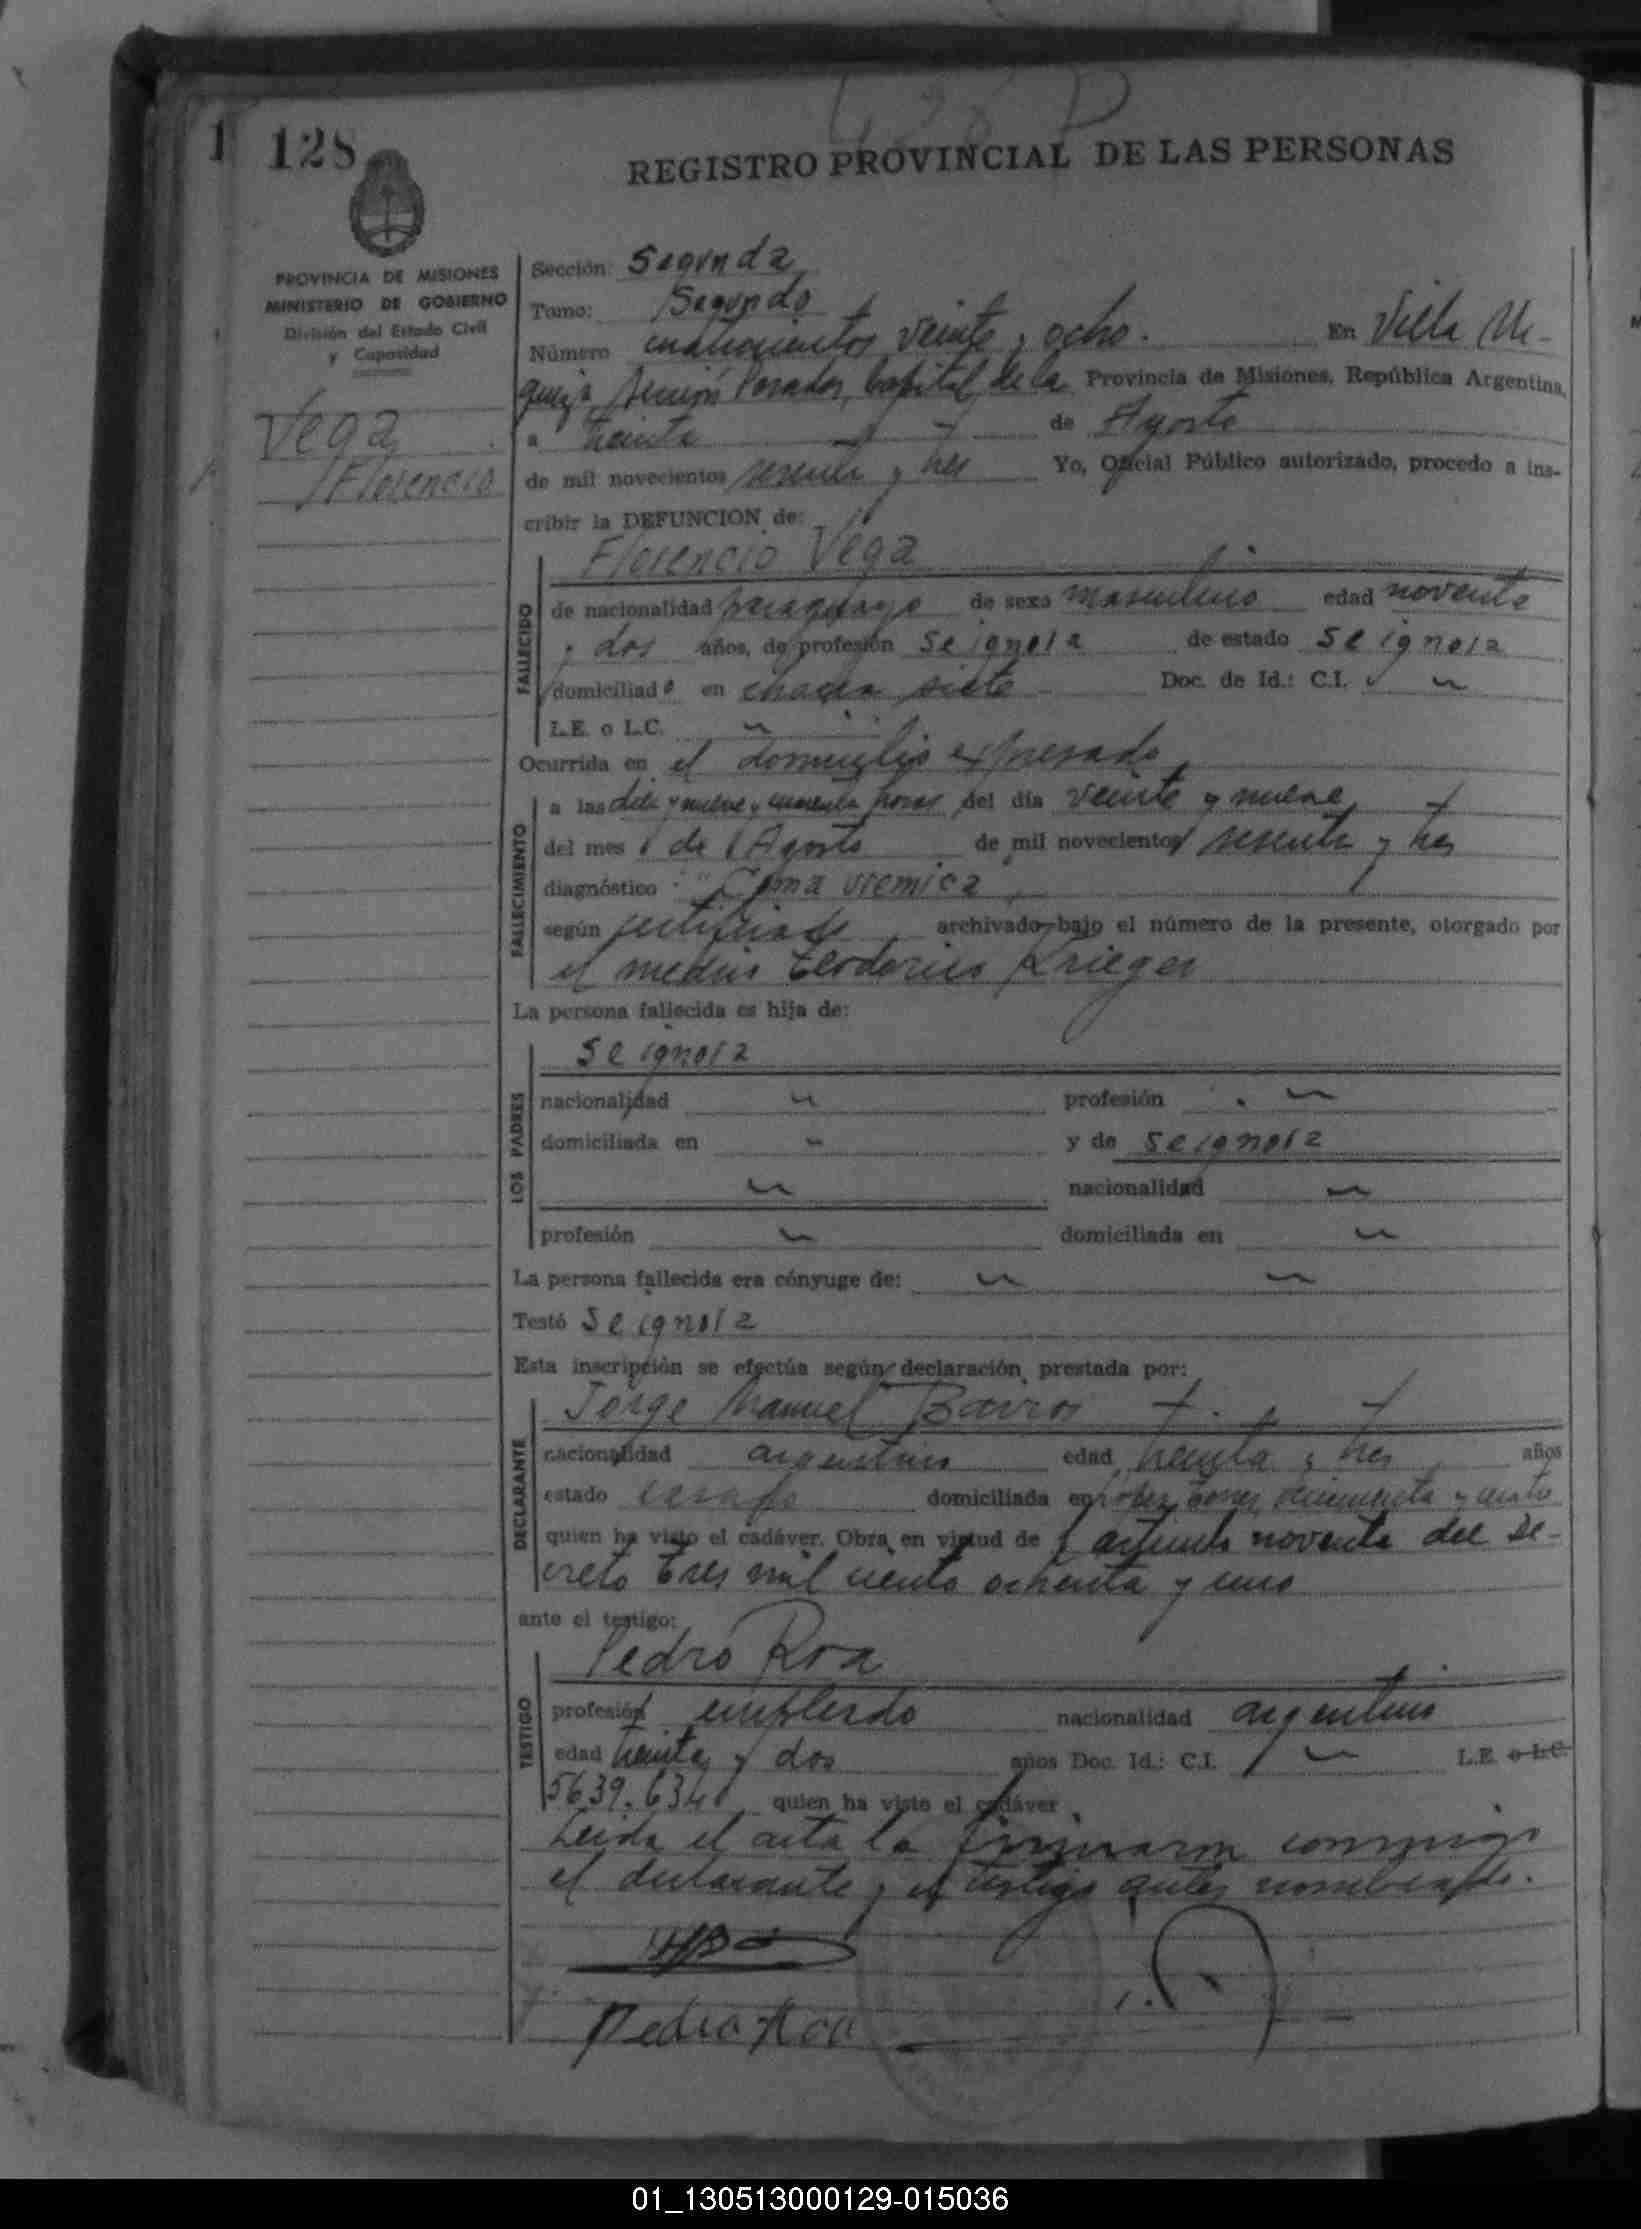 128
REGISTRO PROVINCIAL DE LAS PERSONAS
PROVINCIA DE MISIONES
MINISTERIO DE GOBIERNO
División del Estado Civil
y Capacidad
Vega
Florencio
Sección: Segunda
Tomo: Segundo
Número cuatrocientos veinte y ocho. En Villa Ur-
quiza, Sección Posadas, Capital de la Provincia de Misiones, República Argentina,
a treinta de Agosto
de mil novecientos sesenta y tres Yo, Oficial Público autorizado, procedo a ins-
cribir la DEFUNCION de:
Florencio Vega
FALLECIDO
de nacionalidad paraguayo de sexo masculino edad noventa
y dos años, de profesión se ignora de estado se ignora
domiciliado en chacra siete Doc. de Id.: C.I.
L.E. o L.C.
Ocurrida en el domicilio expresado
FALLECIMIENTO
a las diez y nueve y cuarenta horas del dia veinte y nueve
del mes de Agosto de mil novecientos sesenta y tres
diagnóstico "Coma uremica"
según certificado archivado bajo el número de la presente, otorgado por
el medico Teodorico Krieger
La persona fallecida es hija de:
LOS PADRES
Se ignora
nacionalidad " profesión "
domiciliada en " y de Se ignora
" nacionalidad "
profesión " domiciliada en "
La persona fallecida era cónyuge de: " "
Testó Se ignora
Esta inscripción se efectúa según declaración prestada por:
DECLARANTE
Jorge Manuel Barros
nacionalidad argentino edad treinta y tres años
estado casado domiciliada en cincuenta y cuatro
quien ha visto el cadáver. Obra en virtud de l artículo noventa del De-
creto tres mil ciento ochenta y uno
ante el testigo:
TESTIGO
Pedro Roa
profesión empleado nacionalidad argentino
edad treinta y dos años Doc. Id.: C.I. L.E. o L.C.
5639.634 quien ha visto el cadáver
Leida el acta la firmaron conmigo
el declarante y el testigo antes nombrado.
Pedro Roa
01_130513000129-015036